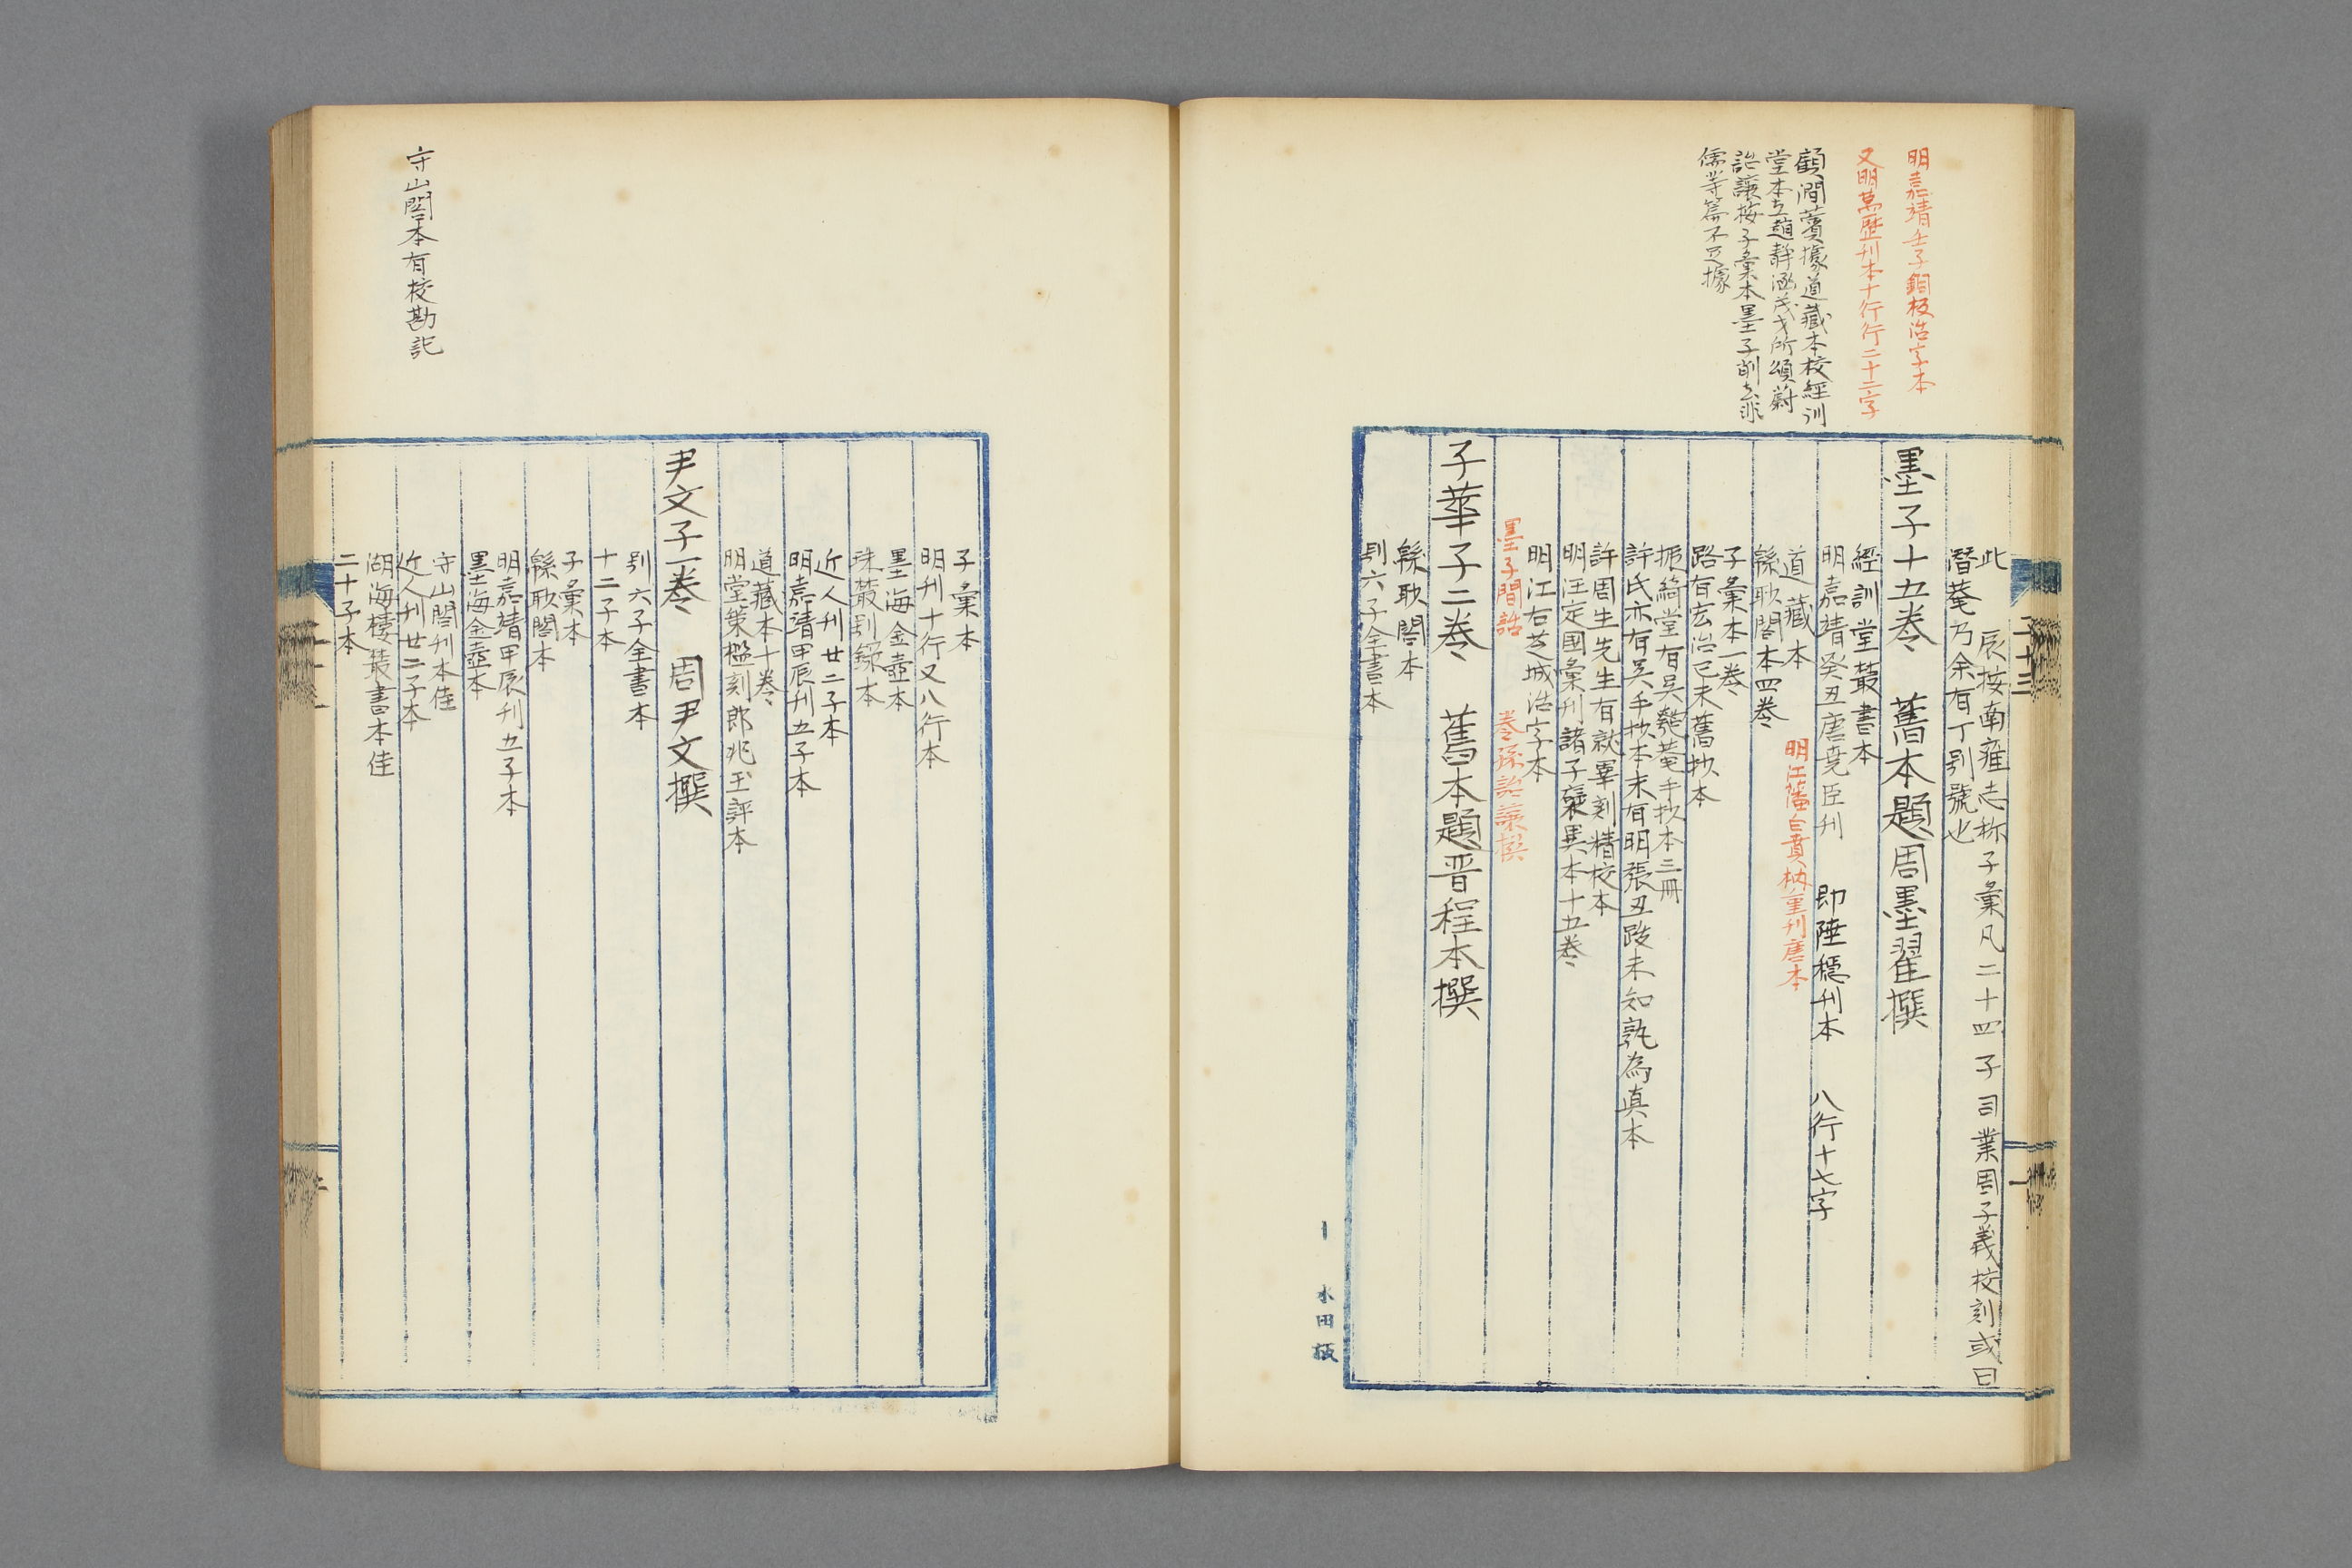 明嘉靖壬子銅板活字本
又明萬歷刊本十行行二十二字
顧澗薲據道藏本校經訓
堂本在趙靜涵茂才所頌蔚
詒讓按子彙本墨子削去非
儒等篇不足據
此　辰按南雍志称子彙凡二十四子司業周子義校刻或曰
潛菴乃余有丁別號也
墨子十五卷　舊本題周墨翟撰
經訓堂叢書本
明嘉靖癸丑唐堯臣刊　即陸穩刊本　八行十七字
道藏本　明江藩白賁枘重刊唐本
緜眇閣本四卷
子彙本一卷
路有玄治己未舊抄本
振綺堂有吳匏菴手抄本三冊
許氏亦有吳手抄本末有明張丑跋未知孰為真本
許周生先生有就畢刻精校本
明汪定國彙刊諸子褒異本十五卷
明江右芝城活字本
墨子閒詁　卷孫詒讓撰
子華子二卷　舊本題晋程本撰
緜眇閣本
別六子全書本
水田板
子彙本
明刊十行又八行本
墨海金壺本
珠叢別錄本
近人刊廿二子本
明嘉靖甲辰刊五子本
道藏本十卷
明堂策檻刻郎兆玉評本
尹文子一卷　周尹文撰
別六子全書本
十二子本
子彙本
緜眇閣本
明嘉靖甲辰刊五子本
墨海金壺本
守山閣刊本佳
近人刊廿二子本
湖海樓叢書本佳
二十子本
守山閣本有校勘記